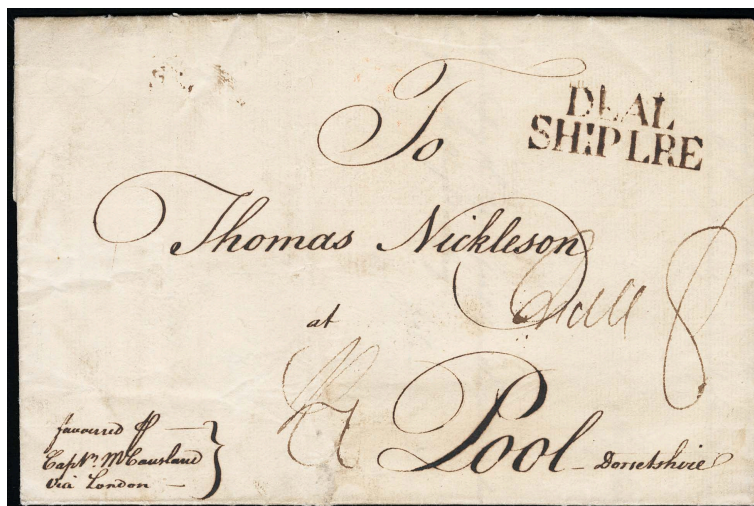 DEAL
SHIP LRE
To
Thomas Nickleson
8
at
Pool - Dorsetshire
favoured ⅌
Captn. McCausland
Via London